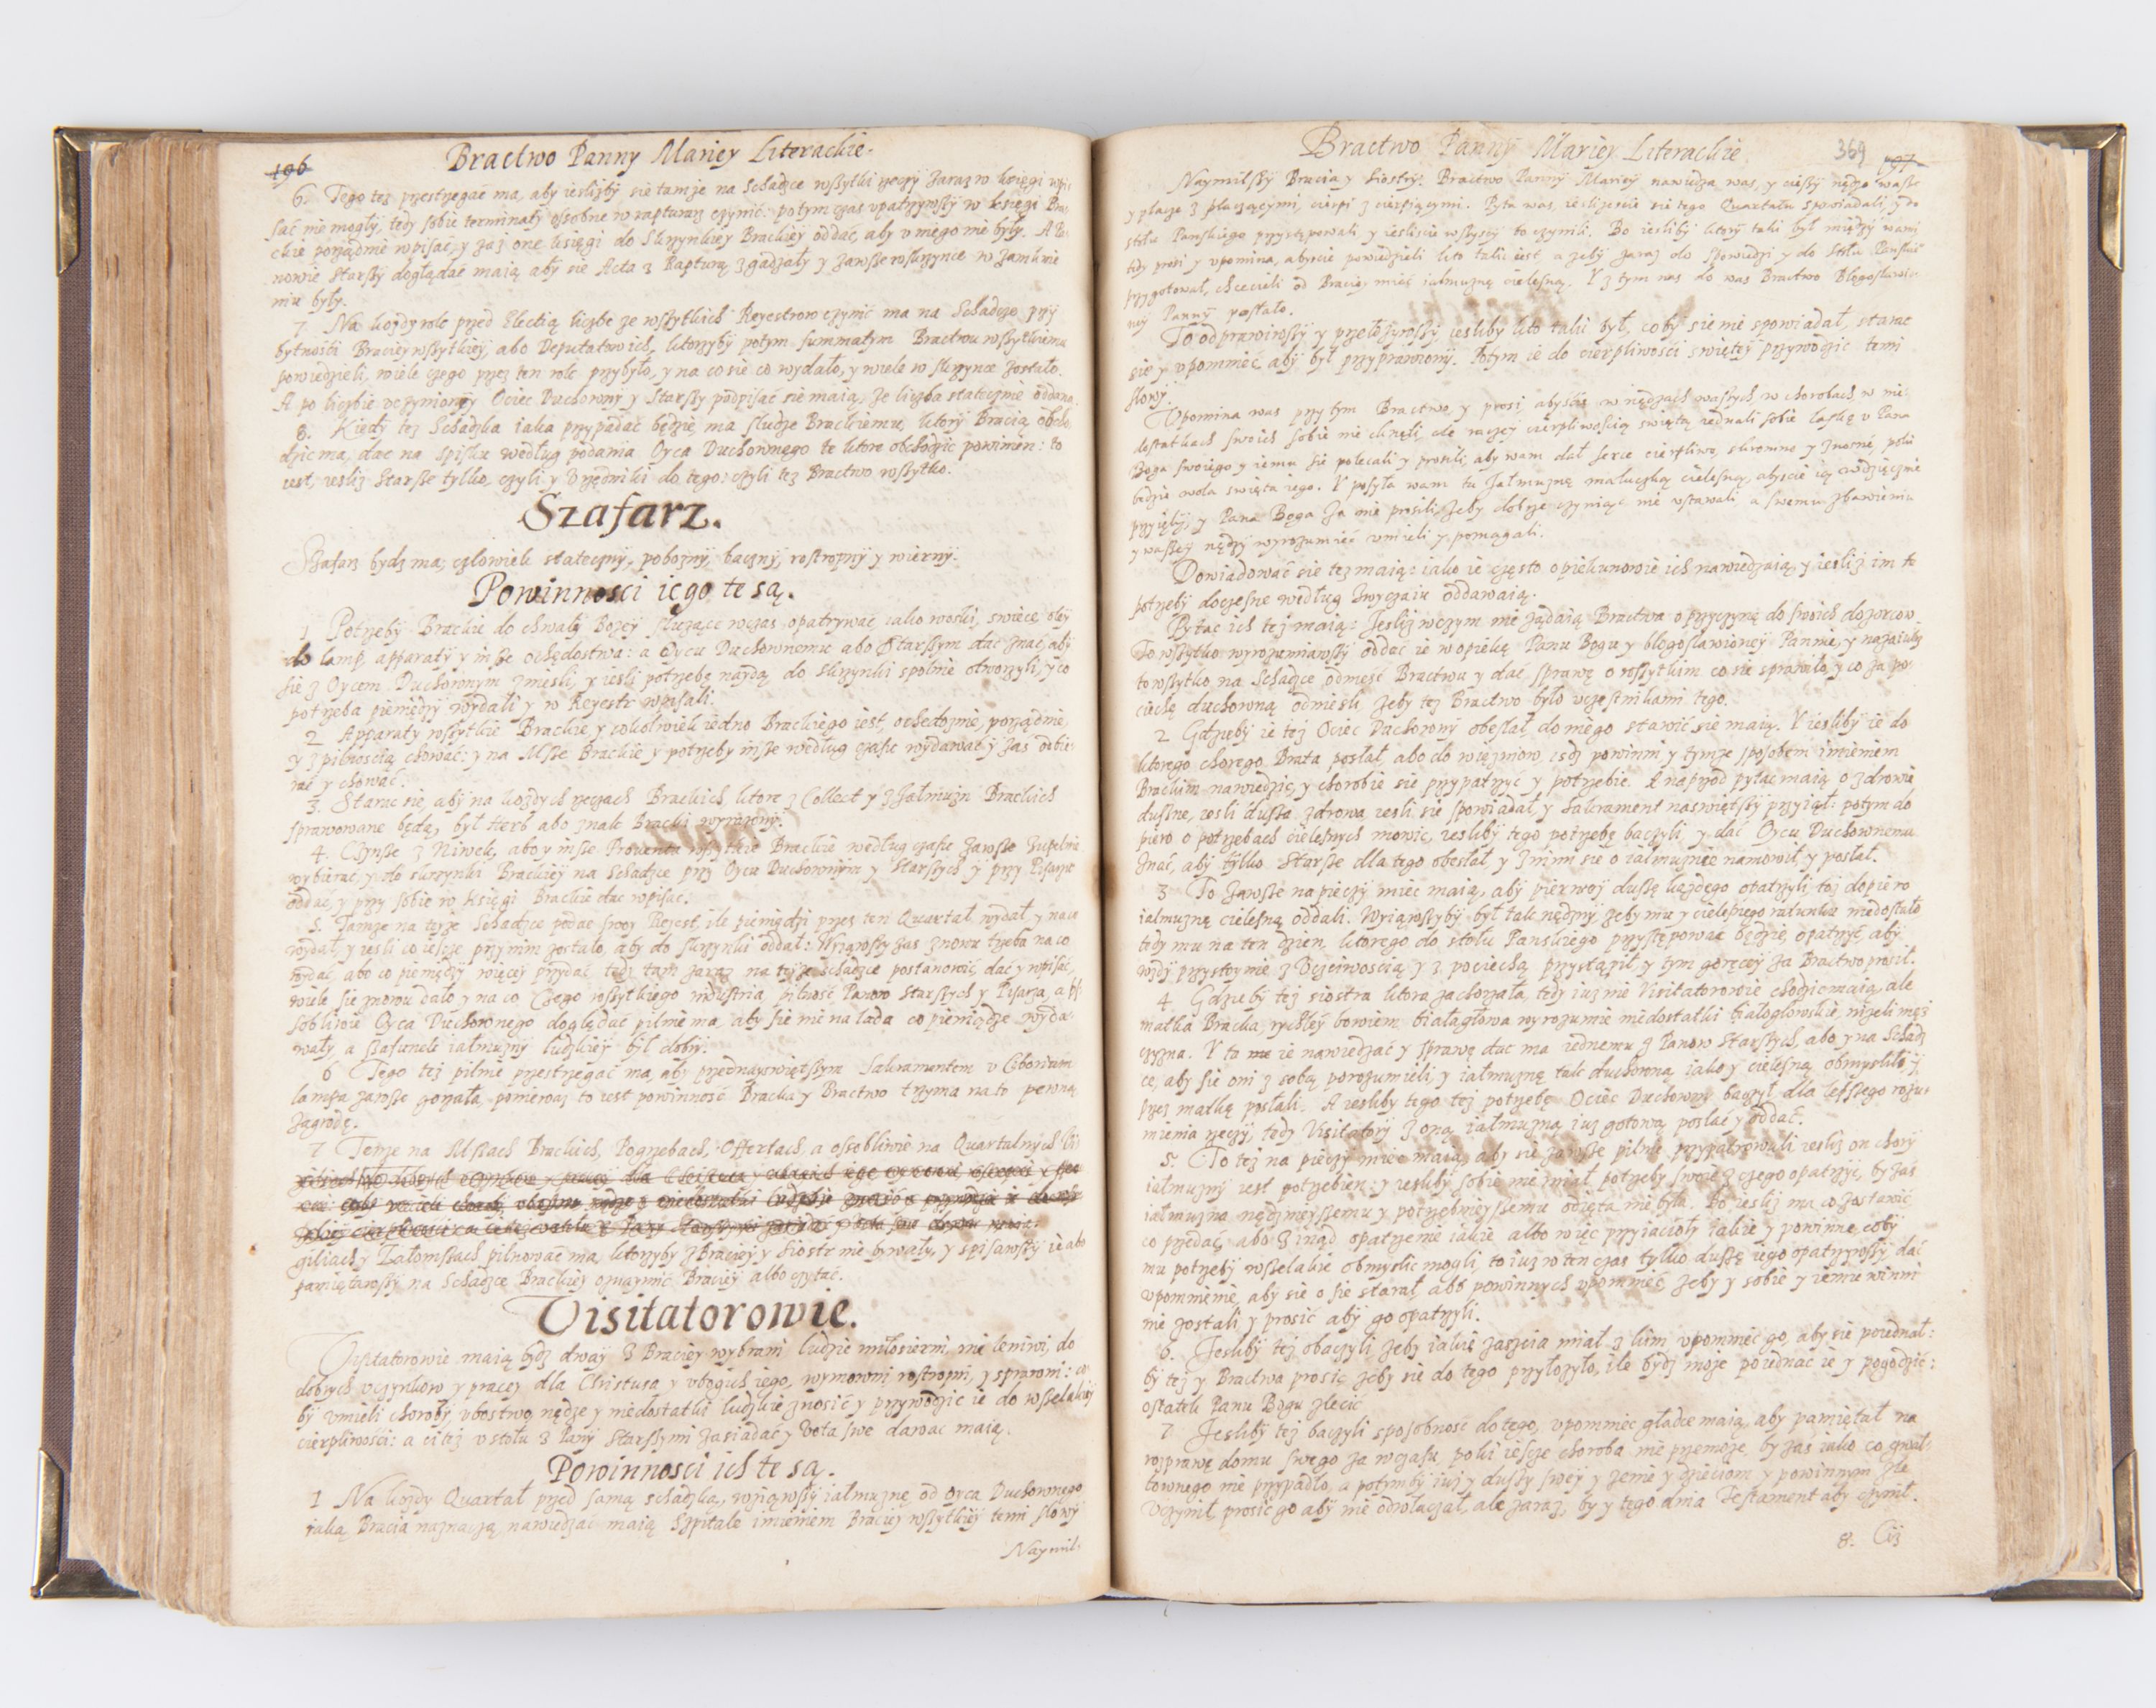 196
Bractwo Panny Mariey Literackie.
6. Tego tez przestrzegać ma, aby iesliżby sie tamże na Schadzce wszytki rzeczy zaraz w księgi wpi
sać nie mogły, tedy sobie terminaty osobne w rapturaz czynić: potym czas upatrzywszy w księgi Brac
ckie porządnie wpisać, y zaś one księgi do Skrzynkiey Brackiey oddać, aby u niego nie były. A Pa
nowie Starszy doglądać maią aby sie Acta z Rapturą zgadzały y zawsze w skrzynce w zamknie
niu były.
7. Na każdy rok przed Electią liczbę ze wszytkich Reyestrow czynić ma na Schadzce, przy
bytności Braciey wszytkiey, abo Deputatow ich, ktorzyby potym summatym Bractwu wszytkiemu
powiedzieli, wiele czego przez ten rok przybyło, y na co sie co wydało, y wiele w skrzynce zostało.
A po liczbie uczynioney Ociec Duchowny y Starszy podpisać sie maią, że liczba statecznie oddana.
8. Kiedy tez Schadzka iaka przypadać będzie, ma słudze Brackiemu, ktory Bracią obcho
dzic ma, dac na spisku według podania Oyca Duchownego te ktore obchodzic powinien: to
iest, ieslisz Starsze tylko, czyli y Urzędniki do tego: czyli tez Bractwo wszytko.
Szafarz.
Szafarz bydz ma, człowiek stateczny, pobożny, baczny, rostropny y wierny.
Powinnosci iego te są.
1 Potrzeby Brackie do chwały Bożey służące wczas opatrywać iako woski, swiece, oley
do lamp, apparaty y insze ochędostwa: a Oycu Duchownemu abo Starszym dać znać, aby
sie z Oycem Duchownym znieśli, y iesli potrzebę naydą do skrzynki spolnie otworzyli, y co
potrzeba pieniędzy wydali y w Reyestr wpisali.
2 Apparaty wszytkie Brackie, y cokolwiek iedno Brackiego iest, ochedożnie, porządnie,
y z pilnoscią chować: y na Msze Brackie y potrzeby insze według czasu wydawać y zas odbie
rać y chować.
3. Starac sie, aby na każdych rzeczach Brackich, ktore z Collect y z Jałmużn Brackich
sprawowane będą, był Herb abo znak Bracki wyrażony.
4. Czynsze z Niwek, abo y insze Proventa wszytkie Brackie według czasu zawsze zupełnie
wybierać, y do skrzynki Brackiey na Schadzce przy Oycu Duchownym y Starszych y przy Pisarzu
oddać, y przy sobie w księgi Brackie dac wpisać.
5. Tamże na teyże Schadzce podać swoy Reiest, ile pieniędzi przez ten Quartał wydał, y na co
wydał, y iesli co iescze przy nim zostało, aby do skrzynki oddał: Wyiąwszy zas znowu trzeba na co
wydać, abo co pieniędzy więcey przydać, tedy tam zaraz na teyże schadzce postanowić, dać y wpisać,
wiele sie znowu dało, y na co. Czego wszytkiego industria, pilność Panow Starszych y Pisarza, a o
sobliwie Oyca Duchownego doglądać pilnie ma, aby sie nie na lada co pieniądze wyda
wały, a szafunek iałmużny ludzkiey był dobry.
6 Tego też pilnie przestrzegać ma, aby przed nayswiętszym Sakramentem u Ciborium
lampa zawsze gorzała, ponieważ to iest powinność Bracka y Bractwo trzyma na to pewną
zagrodę.
7 Tenże na Mszach Brackich, Pogrzebach, Offertach, a osobliwie na Quartalnych Vi
giliach y Załomszach pilnować ma, ktorzyby z Braciey y Siostr nie bywały, y spisawszy ie abo
pamiętawszy na Schadzce Brackiey oznaymić Braciey albo czytać.
Visitatorowie.
Visitatorowie maią bydz dway z Braciey wybrani ludzie miłosierni, nie leniwi, do
dobrych uczynkow y pracey dla Christusa y ubogich iego, wymowni rostropni, y sprawni: co
by umieli choroby, ubostwo, nędze y niedostatki ludzkie znosić y przywodzic ie do wszelakiey
cierpliwości: a ci też u stołu z Pany Starszymi zasiadać y Vota swe dawać maią.
Powinnosci ich te są.
1 Na każdy Quartał przed samą schadzką, wziąwszy iałmużnę od Oyca Duchownego
iaką Bracia naznaczą nawiedzać maią Szpitale imieniem Braciey wszytkiey temi słowy
Naymil:
Bractwo Panny Mariey Literackie
369
197
Naymilszy Bracia y Siostry: Bractwo Panny Mariey nawiedza was, y cieszy nędze wasze
y płacze z płaczącymi, cierpi z cierpiącymi. Pyta was, ieslizescie sie tego Quartału spowiadali, y do
stołu Panskiego przystępowali y iesliscie wszyscy to czynili. Bo iesliby ktory taki był między wami
tedy prosi y upomina, abyscie powiedzieli kto taki iest, a zeby zaraz do spowiedzi y do stołu Panskie
przygotował, chcecieli od Braciey mieć iałmużnę cielesną. Y z tym nas do was Bractwo Błogosławio
ney Panny posłało.
To odprawiwszy y przełożywszy iesliby kto taki był, coby sie nie spowiadał, starac
sie y upomnieć aby był przyprawiony. Potym ie do cierpliwości swiętey przywodzic temi
słowy.
Upomina was przytym Bractwo, y prosi abyście w nędzach waszych w chorobach, w nie
dostatkach swoich sobie nie cknęli, ale raczey cierpliwością swiętą iednali sobie łaskę u Pana
Boga swoiego y iemu sie polecali y prosili, aby wam dał serce cierpliwe, skromne y znośne, poki
będzie wola swięta iego. Y posyła wam tu Jałmużnę maluczką cielesną, abyscie ią wdzięcznie
przyięli, y Pana Boga za nie prosili, żeby dobrze czyniąc nie ustawali a swemu zbawieniu
y waszey nędzy wyrozumieć umieli y pomagali.
Dowiadować sie tez maią: iako ie często opiekunowie ich nawiedzaią, y iesliż im te
potrzeby doczesne według zwyczaiu oddawaią.
Pytać ich też maią: Jesliż w czym nie żądaią Bractwa o przyczynę do swoich dozorcow
To wszytko wyrozumiawszy oddać ie w opiekę Panu Bogu y błogosławioney Pannie, y nazaiutrz
to wszytko na Schadzce odnieść Bractwu y dać sprawę o wszytkim co sie sprawiło, y co za po
ciechę duchowną odnieśli, żeby też Bractwo było uczestnikami tego.
2 Gdzieby ie też Ociec Duchowny obesłał, do niego stawić sie maią. Y iesliby ie do
ktorego chorego Brata posłał, abo do więzniow, iśdź powinni y tymże sposobem imieniem
Brackim nawiedzić, y chorobie sie przypatrzyć y potrzebie. A naprzod pytac maią o zdrowie
duszne, iesli dusza zdrowa, iesli sie spowiadał, y Sakrament naswiętszy przyiął: potym do
piero o potrzebach cielesnych mowic, iesliby tego potrzebę baczyli, y dać Oycu Duchownemu
znać, aby tylko Starsze dla tego obesłał, y z nimi sie o iałmużnie namowił, y posłał.
3 To zawsze na pieczy mieć maią, aby pierwey duszę każdego opatrzyli, toż dopiero
iałmużnę cielesną oddali. Wyiąwszyby był tak nędzny, żeby mu y cielesnego ratunku niedostało
tedy mu na ten dzien, ktorego do stołu Panskiego przystępować będzie, opatrzyć, aby
wżdy przystoynie z Uczciwoscią y z pociechą przystąpił, y tym goręcey za Bractwo prosił.
4 Gdzieby też siostra ktora zachorzała, tedy iuż nie Visitatorowie chodzic maią, ale
matka Bracka, rychley bowiem białagłowa wyrozumie niedostatki białogłowskie, niżeli męż
czyzna. Y ta ie nawiedzać y sprawę dac ma iednemu z Panow Starszych, abo y na Schadz
ce, aby sie oni z sobą porozumieli, y iałmużnę tak duchowną iako y cielesną obmyslili, y
przez matkę posłali. A iesliby tego też potrzebę Ociec Duchowny baczył dla lepszego rozu
mienia rzeczy, tedy Visitatory z oną iałmużną iuż gotową posłać y oddać.
5. To też na pieczy mieć maią, aby sie zawsze pilnie przypatrowali iesliż on chory
iałmużny iest potrzebien: y iesliby sobie nie miał potrzeby swoie z czego opatrzyć, by zas
iałmużna nędznieyszemu y potrzebnieyszemu odięta nie była. Bo iesliż ma co zastawić
co przedać, abo z inąd opatrzenie iakie albo więc przyiacioły iakie y powinne, coby
mu potrzeby wszelakie obmyslic mogli, to iuż w ten czas tylko duszę iego opatrzywszy, dać
upomnienie, aby sie o sie starał abo powinnych upomnieć, żeby y sobie y iemu winni
nie zostali, y prosić aby go opatrzyli.
6. Jesliby też obaczyli, żeby iakie zaszcia miał z kim upomnieć go, aby sie poiednał:
by też y Bractwa prosić żeby sie do tego przyłożyło, ile bydź może poiednać ie y pogodzić:
ostatek Panu Bogu zlecić
7 Jesliby też baczyli sposobność do tego, upomnieć gładce maią, aby pamiętał na
rozprawę domu swego za wczasu, poki iescze choroba nie przemoże, by zas iako co gwał
townego nie przypadło, a potymby iuż y duszy swey y żenie y dzieciom y powinnym źle
uczynił, prosić go aby nie odwłaczał, ale zaraz, by y tego dnia Testament aby czynił.
8. Ciż